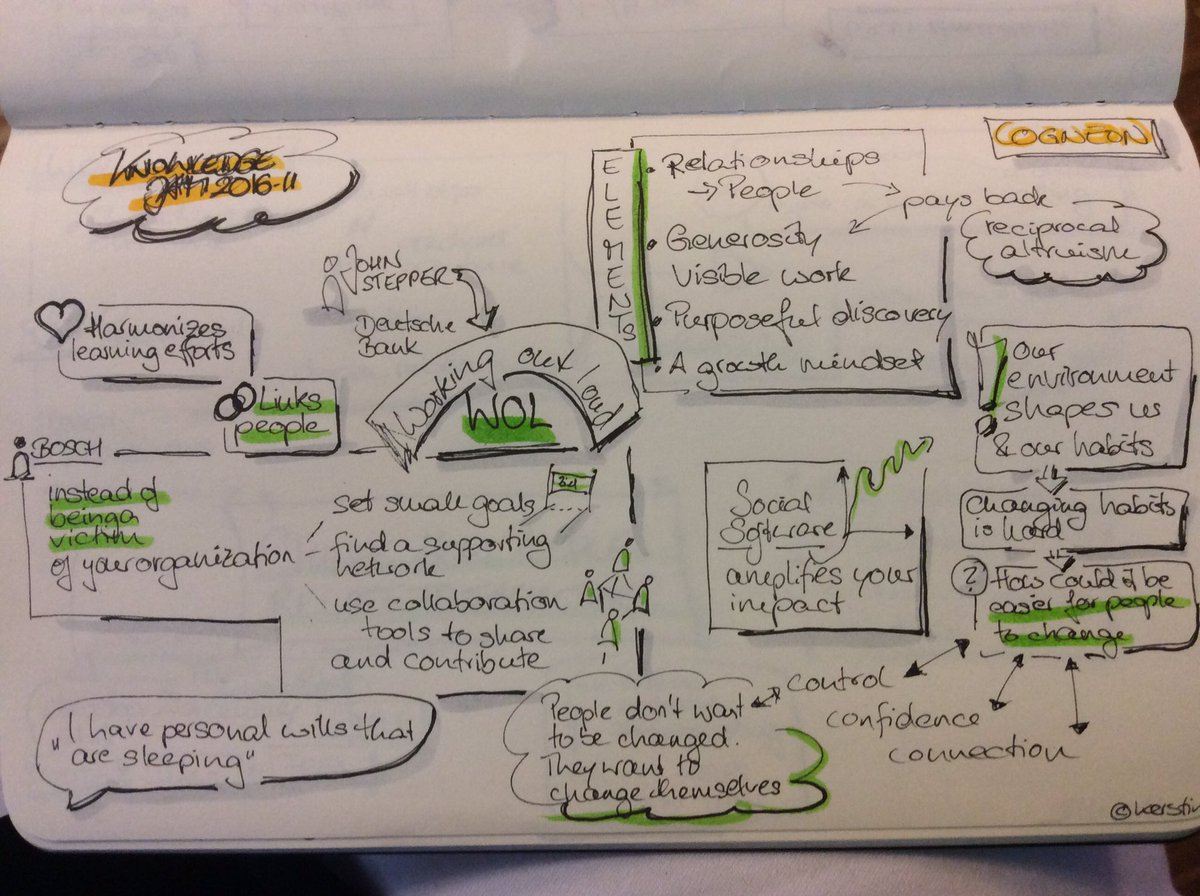 KNOWLEDGE
2016-11
COGNEON
ELEMENTS
• Relationships
→ People
pays back
reciprocal
altruism
• Generosity
Visible work
• Purposeful discovery
• A growth mindset
JOHN
STEPPER
Deutsche
Bank
Working out loud
WOL
Harmonizes
learning efforts
Links
people
BOSCH
instead of
being a
victim
of your organization
set small goals
Ziel
find a supporting
network
use collaboration
tools to share
and contribute
"I have personal wills that
are sleeping"
Social
Software
amplifies your
impact
! our
environment
shapes us
& our habits
Changing habits
is hard
? How could it be
easier for people
to change
control
confidence
connection
People don't want
to be changed.
They want to
change themselves